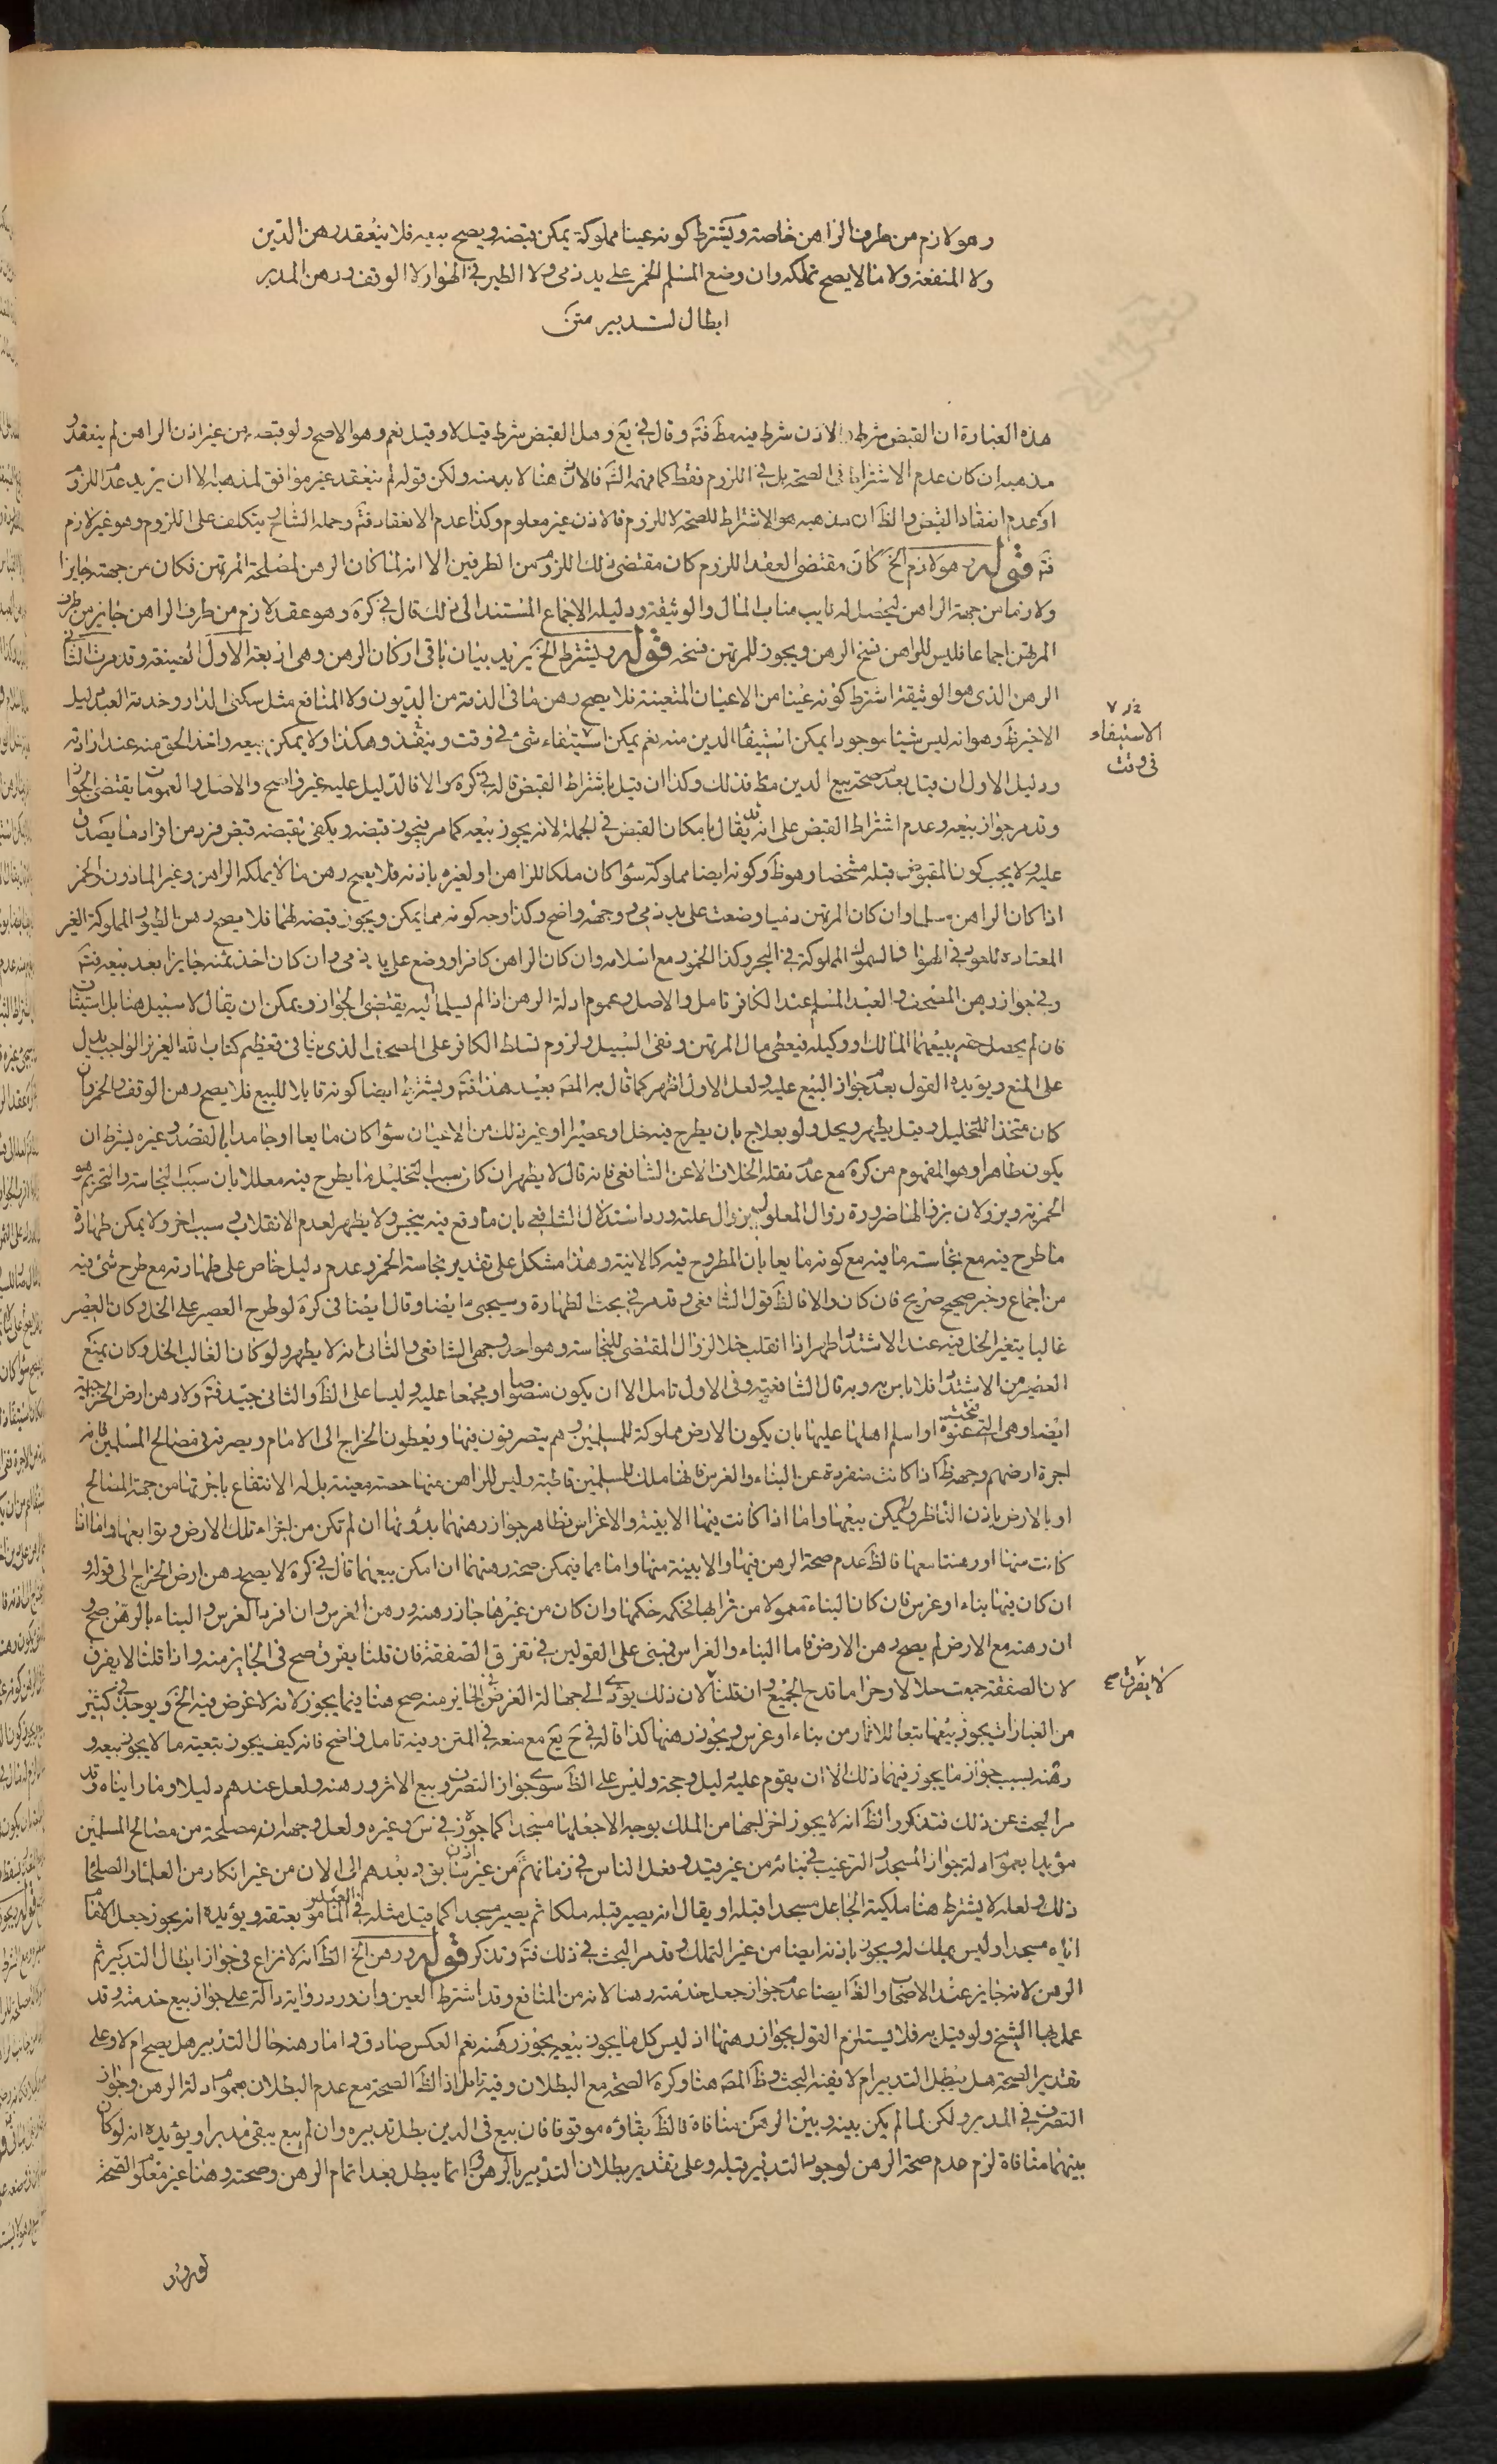 وهو لازم من طرف الراهن خاصة ويشترط كونه عينا مملوكة يمكن قبضه ويصح بيعه فلا ينعقد رهن الدين
ولا المنفعة ولا ما لا يصح تملكه وان وضع المسلم الخمر على يد ذمى ولا الطير في الهواء ولا الوقف ورهن المدبر
ابطال لتدبير متن
هذه العبارة ان القبض شرط والاذن شرط فيه مطَ فتَه وقال في يَع وهل القبض شرط قيل لا وقيل نعم وهو الاصح ولو قبضه من غير اذن الراهن لم ينعقد
مذهبه ان كان عدم الاشتراط فى الصحة بل في اللزوم فقط كما فهمه الشَه فالاذن هنا لا بد منه ولكن قوله لم ينعقد غير موافق لمذهبه الا ان يريد عدم اللزوم
او عدم انعقاد القبض والظَ ان مذهبه هو الاشتراط للصحة لا للزوم فالاذن غير معلوم وكذا عدم الانعقاد فتَه وحمله الشارح بتكلف على اللزوم وهو غير لازم
فتَه قوله وهو لازم الخ كان مقتضى العقد اللزوم كان مقتضى ذلك اللزوم من الطرفين الا انه لما كان الرهن لمصلحة المرتهن فكان من جهته جايزا
ولازما من جهة الراهن ليحصل له نايب مناب المال والوثيقة ودليله الاجماع المستند الى ذلك قال في كرَه وهو عقد لازم من طرف الراهن جايز من طرف
المرتهن اجماعا فليس للراهن فسخ الرهن ويجوز للمرتهن فسخه قوله ويشترط الخ يريد بيان باقى اركان الرهن وهى اربعة الاول الصيغة وقد مرت الثانى
الرهن الذى هو الوثيقة اشترط كونه عينا من الاعيان المتعينة فلا يصح رهن ما فى الذمة من الديون ولا المنافع مثل سكنى الدار وخدمة العبد دليل
الاخير ظَ وهو انه ليس شيئا موجودا يمكن استيفاء الدين منه نعم يمكن استيفاء شئ في وقت وينفذ وهكذا ولا يمكن بيعه واخذ الحق منه عند ارادته
الاستيفاء
فى وقت
ودليل الاول ان قيل بعدم صحة بيع الدين مطَ فذلك وكذا ان قيل باشتراط القبض قاله في كرَه والا فالدليل عليه غير واضح والاصل والعمومات يقتضى الجواز
وقد مر جواز بيعه وعدم اشتراط القبض على انه قد يقال بامكان القبض في الجملة لانه يجوز بيعه كما مر فيجوز قبضه ويكفى بقبضه قبض فرد من افراد ما يصدق
عليه ولا يجب كون المقبوض قبله مشخصا وهو ظَ وكونه ايضا مملوكة سواء كان ملكا للراهن او لغيره باذنه فلا يصح رهن ما لا يملكه الراهن وغير الماذون والخمر
اذا كان الراهن مسلما وان كان المرتهن ذميا وضعت على يد ذمى ووجهه واضح وكذا وجه كونه مما يمكن ويجوز قبضه لهما فلا يصح رهن الطيور المملوكة الغير
المعتادة للعود في الهواء والسموك المملوكة في البحر وكذا الخمور مع اسلامه وان كان الراهن كافرا ووضع على يد ذمى وان كان اخذ ثمنه جايزا بعد بيعه فتَه
وفي جواز رهن المصحف والعبد المسلم عند الكافر تامل والاصل وعموم ادلة الرهن اذا لم يسلما اليه يقتضى الجواز ويمكن ان يقال لا سبيل هنا بل استيثاق
فان لم يحصل حقه يبيعهما المالك او وكيله فيعطى مال المرتهن ونفى السبيل ولزوم تسلط الكافر على المصحف الذى ينافى تعظيم كتاب الله العزيز الواجب يدل
على المنع ويؤيده القول بعدم جواز البيع عليه ولعل الاول اظهر كما قال به المصَ بعيد هذا فتَه ويشترط ايضا كونه قابلا للبيع فلا يصح رهن الوقف والخمر وان
كان متخذا للتخليل وقيل يطهر ويحل ولو بعلاج بان يطرح فيه خل او عصير او غير ذلك من الاعيان سواء كان مايعا او جامدا بالقصد وغيره بشرط ان
يكون طاهرا وهو المفهوم من كرَه مع عدم نقله الخلاف الا عن الشافعى فانه قال لا يطهر ان كان سبب التخليل ما يطرح فيه معللا بان سبب النجاسة والتحريم هو
الخمرية ويزولان بزوالها ضرورة زوال المعلول بزوال علته ورد استدلال الشافعي بان ما وقع فيه ينجس ولا يظهر لعدم الانقلاب وسبب اخر ولا يمكن طهارة
ما طرح فيه مع نجاسة ما فيه مع كونه مايعا بان المطروح فيه كالانية وهذا مشكل على تقدير نجاسة الخمر وعدم دليل خاص على طهارته مع طرح شئ فيه
من اجماع وخبر صحيح صريح فان كان والا فالظَ قول الشافعى وقد مر في بحث الطهارة وسيجئ ايضا وقال ايضا فى كرَه لو طرح العصير على الخل وكان العصير
غالبا يتغير الخل فيه عند الاشتداد طهر اذا انقلب خلا لزوال المقتضى للنجاسة وهو احد وجهى الشافعى والثانى انه لا يطهر ولو كان الغالب الخل وكان يمنع
العصير من الاشتداد فلا باس به وبه قال الشافعية وفى الاول تامل الا ان يكون منصوصا او مجمعا عليه وليسا على الظَ والثانى جيد فتَه ولا رهن ارض الخراجية
ايضا وهى التى فتحت عنوة او اسلم اهلها عليها بان يكون الارض مملوكة للمسلمين وهم يتصرفون فيها ويعطون الخراج الى الامام ويصرف فى مصالح المسلمين فانه
اجرة ارضهم وجهه ظَ اذا كانت منفردة عن البناء والغرس فانها ملك للمسلمين قاطبة وليس للراهن منها حصة معينة بل له الانتفاع باجرتها من جهة المصالح
او بالارض باذن الناظر ولا يمكن بيعها واما اذا كانت فيها الابنية والاغراس فظاهر جواز رهنهما بدونها ان لم تكن من اجزاء تلك الارض وتوابعها واما اذا
كانت منها او رهنتا معها فالظَ عدم صحة الرهن فيها والابنية منها واما بهما فيمكن صحة رهنهما ان امكن بيعهما قال في كرَه لا يصح رهن ارض الخراج الى قوله و
ان كان فيها بناء او غرس فان كان البناء معمولا من ترابها فحكمه حكمها وان كان من غيرها جاز رهنه ورهن الغرس وان افرد الغرس والبناء بالرهن صح و
ان رهنه مع الارض لم يصح رهن الارض فاما البناء والغراس فيبنى على القولين في تفرق الصفقة فان قلنا يفرق صح فى الجايز منه واذا قلنا لا يفرق
لا يفرق صح
لان الصفقة جمعت حلالا وحراما قدح الجميع وان قلنا لان ذلك يؤدى الى جهالة العوض في الجايز منه صح هنا فيما يجوز لانه لا عوض فيه الخ ويوجد في كثير
من العبارات يجوز بيعها تبعا للاثار من بناء او غرس ويجوز رهنها كذا قاله في حَ يَع مع منعه في المتن وفيه تامل واضح فانه كيف يجوز بتبعية ما لا يجوز بيعه و
رهنه بسبب جواز ما يجوز فيهما ذلك الا ان يقوم عليه دليل وحجة وليس على الظَ سوى جواز التصرف وبيع الاثر ورهنه ولعل عندهم دليلا وما رايناه وقد
مر البحث عن ذلك فتذكر والظَ انه لا يجوز اخراجها من الملك بوجه الا جعلها مسجدا كما جوزه في س وغيره ولعل وجهه انه مصلحة من مصالح المسلمين
مؤيدا بعموم ادلة جواز المسجد والترغيب في بنائه من غير قيد وفعل الناس في زمانهم من غير اذن بق وبعدهم الى الان من غير انكار من العلماء والصلحاء
ذلك ولعله لا يشترط هنا ملكية الجاعل مسجدا قبله او يقال انه يصير قبله ملكا ثم يصير مسجدا كما قيل مثله في العبد المامور بعتقه ويؤيده انه يجوز جعل الامام
اياه مسجدا وليس بملك له ويجوز باذنه ايضا من غير التملك وقد مر البحث في ذلك فتَه وتذكر قوله ورهن الخ الظَ انه لا نزاع فى جواز ابطال التدبير ثم
الرهن لانه جايز عند الاصحاب والظَ ايضا عدم جواز جعل خدمته رهنا لانه من المنافع وقد اشترط العين وان ورد رواية دالة على جواز بيع خدمته وقد
عمل بها الشيخ ولو قيل به فلا يستلزم القول بجواز رهنها اذ ليس كل ما يجوز بيعه يجوز رهنه نعم العكس صادق واما رهنه حال التدبير هل يصح ام لا وعلى
تقدير الصحة هل يبطل التدبير ام لا يفيه البحث وظَ المصَ هنا وكرَه الصحة مع البطلان وفيه تامل اذ الظَ الصحة مع عدم البطلان بعموم ادلة الرهن وجواز
التصرف في المدبر ولكن لما لم يكن بينه وبين الرهن منافاة فالظَ بقاؤه موقوفا فان بيع فى الدين بطل تدبيره وان لم يبع يبقى مدبرا ويؤيده انه لو كان
بينهما منافاة لزم عدم صحة الرهن لوجود التدبير قبله وعلى تقدير بطلان التدبير بالرهن انما يبطل بعد اتمام الرهن وصحته وهنا غير معلوم الصحة
لورود